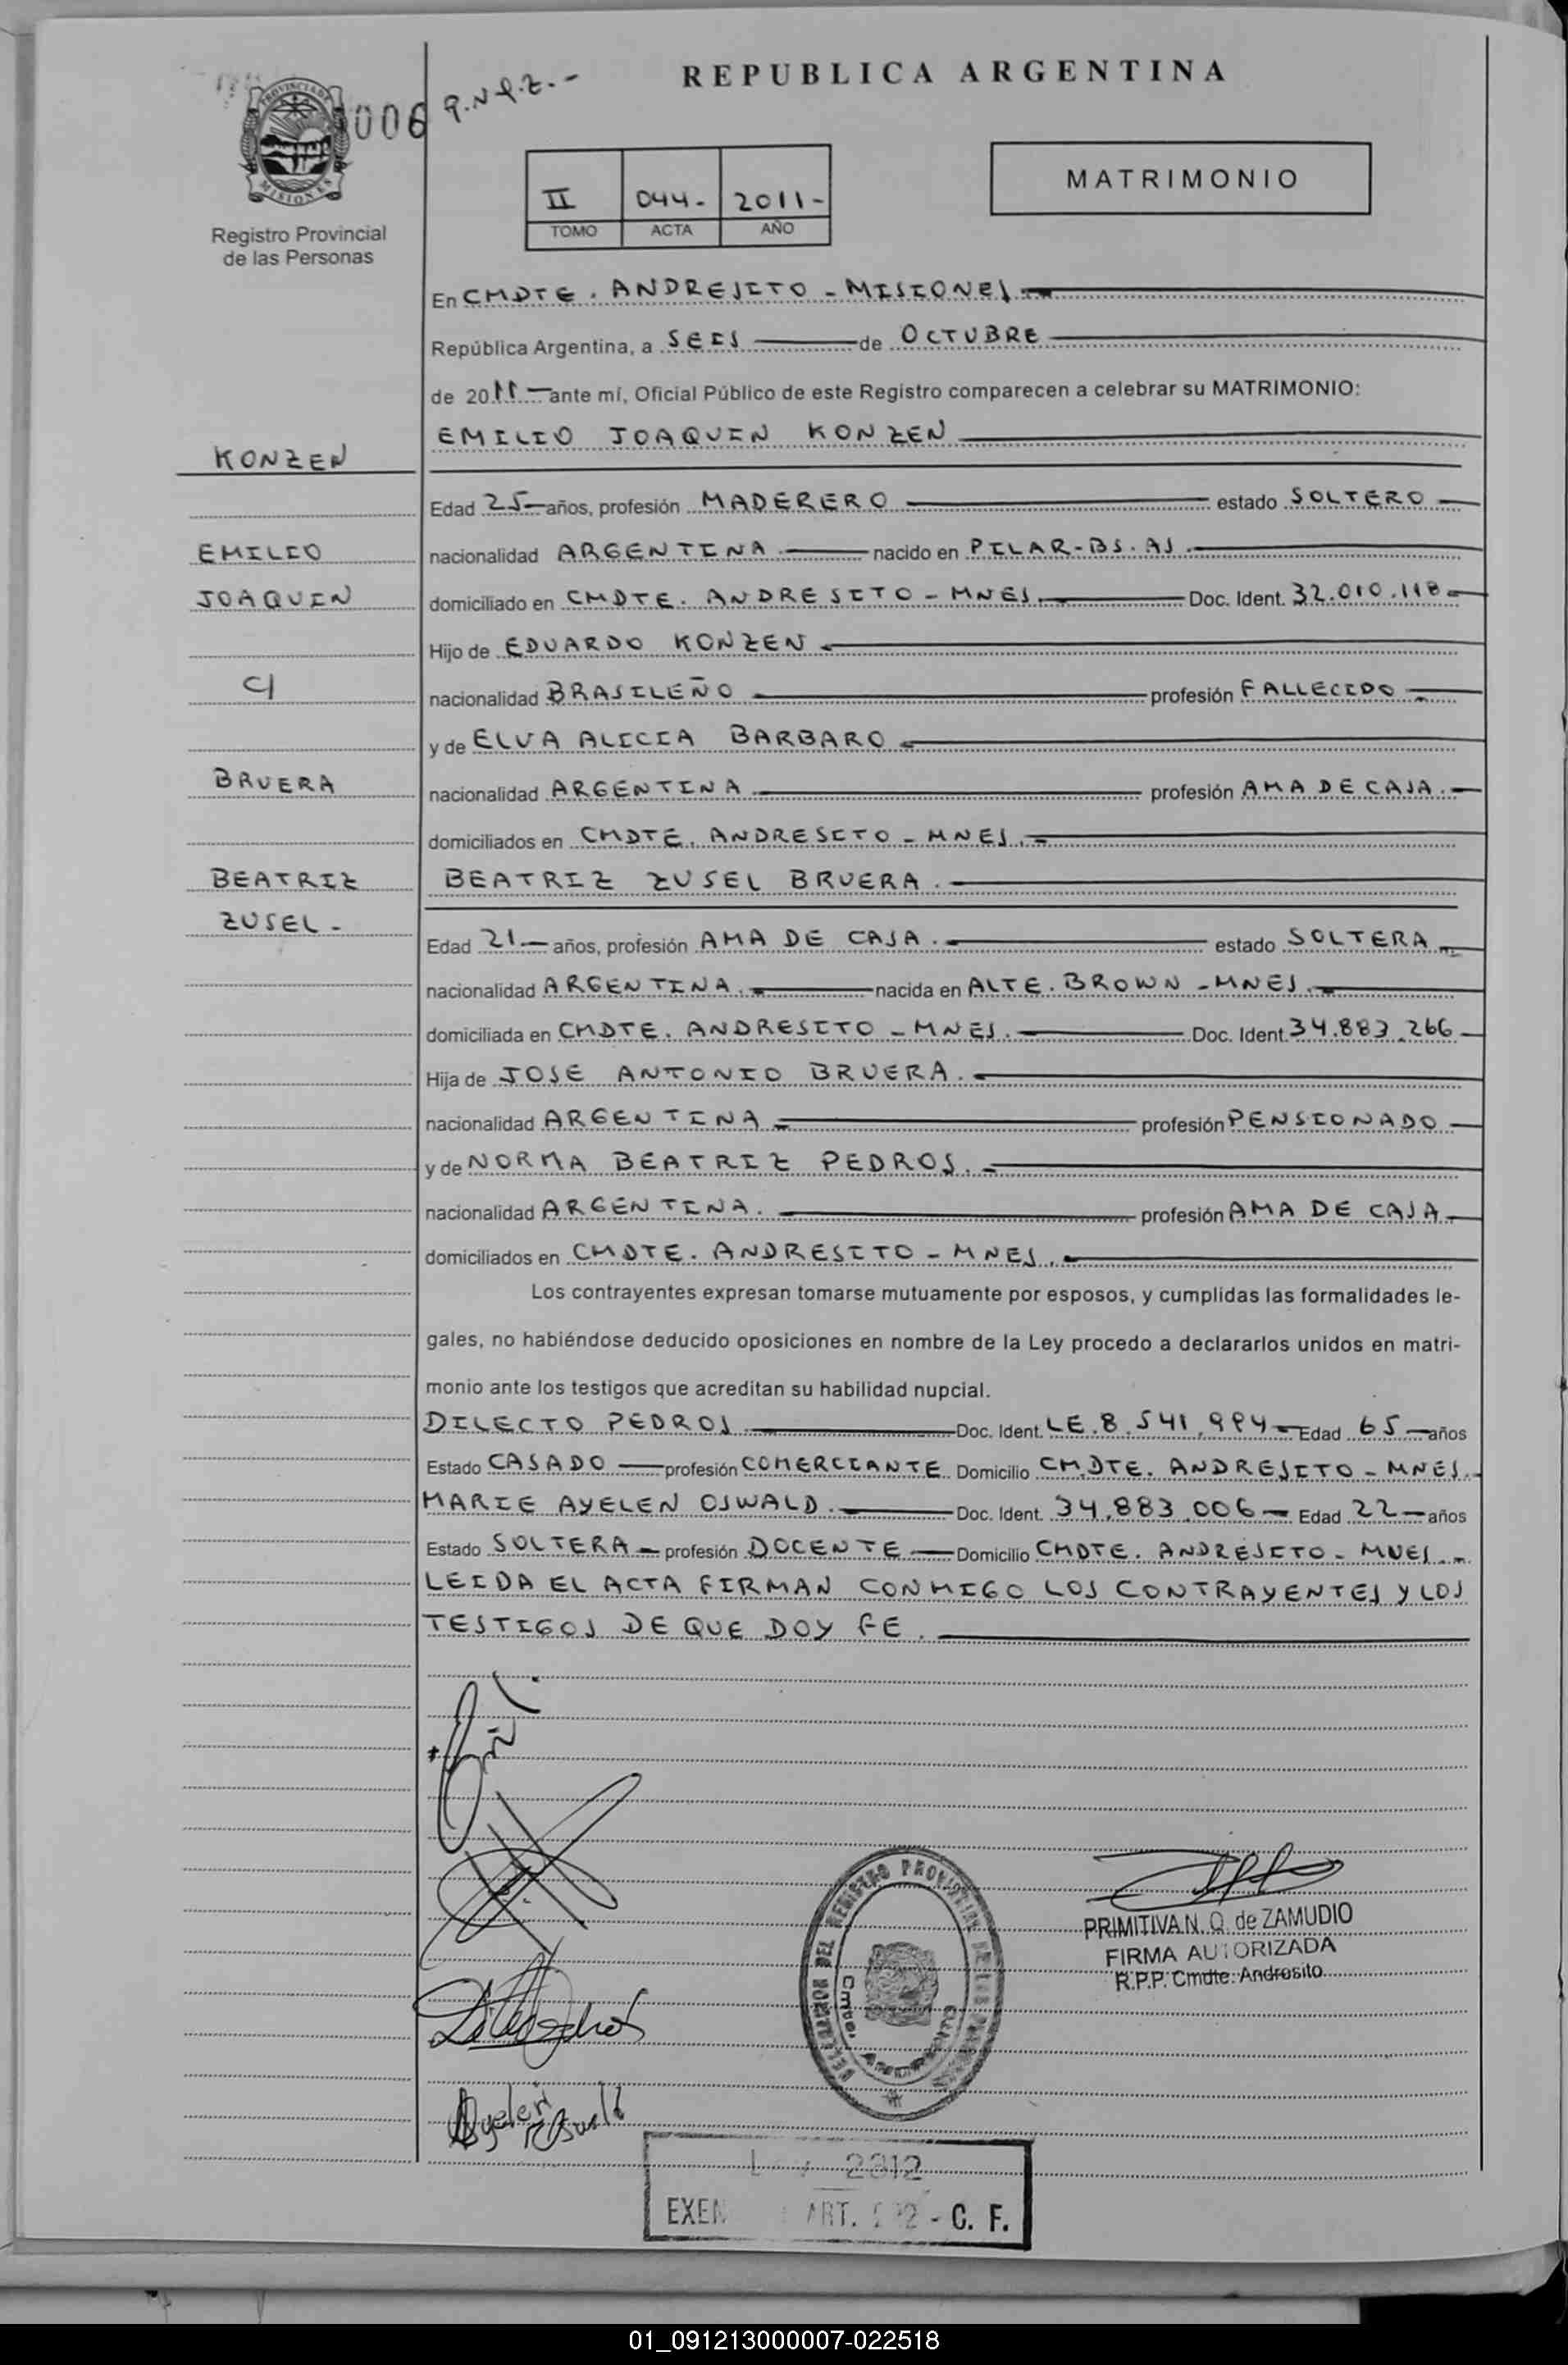 REPUBLICA ARGENTINA
006
MATRIMONIO
II 044- 2011-
TOMO ACTA AÑO
PROVINCIA DE
MISIONES
Registro Provincial
de las Personas
En CMDTE. ANDRESITO - MISIONES
República Argentina, a SEIS de OCTUBRE
de 2011 ante mí, Oficial Público de este Registro comparecen a celebrar su MATRIMONIO:
EMILIO JOAQUIN KONZEN
KONZEN
Edad 25 años, profesión MADERERO estado SOLTERO
EMILIO
nacionalidad ARGENTINA. nacido en PILAR-BS.AS.
JOAQUIN
domiciliado en CMDTE. ANDRESITO - MNES. Doc. Ident. 32.010.118
Hijo de EDUARDO KONZEN
C/
nacionalidad BRASILEÑO profesión FALLECIDO
y de ELVA ALICIA BARBARO
BRUERA
nacionalidad ARGENTINA profesión AMA DE CASA.
domiciliados en CMDTE. ANDRESITO - MNES.
BEATRIZ
BEATRIZ ZUSEL BRUERA.
ZUSEL-
Edad 21 años, profesión AMA DE CASA. estado SOLTERA
nacionalidad ARGENTINA. nacida en ALTE. BROWN - MNES.
domiciliada en CMDTE. ANDRESITO - MNES. Doc. Ident. 34.883.266
Hija de JOSE ANTONIO BRUERA.
nacionalidad ARGENTINA profesión PENSIONADO
y de NORMA BEATRIZ PEDROS.
nacionalidad ARGENTINA. profesión AMA DE CASA
domiciliados en CMDTE. ANDRESITO - MNES.
Los contrayentes expresan tomarse mutuamente por esposos, y cumplidas las formalidades le-
gales, no habiéndose deducido oposiciones en nombre de la Ley procedo a declararlos unidos en matri-
monio ante los testigos que acreditan su habilidad nupcial.
DILECTO PEDROS Doc. Ident. LE.8.541.994 Edad 65 años
Estado CASADO profesión COMERCIANTE Domicilio CMDTE. ANDRESITO - MNES.
MARIE AYELEN OSWALD. Doc. Ident. 34.883.006 Edad 22 años
Estado SOLTERA profesión DOCENTE Domicilio CMDTE. ANDRESITO - MNES.
LEIDA EL ACTA FIRMAN CONMIGO LOS CONTRAYENTES Y LOS
TESTIGOS DE QUE DOY FE.
DEL REGISTRO PROVINCIAL DE LAS
Cmte.
PRIMITIVA N. Q. de ZAMUDIO
FIRMA AUTORIZADA
R.P.P. Cmdte. Andresito
Ayelen
2912
EXEN ART. - C. F.
01_091213000007-022518